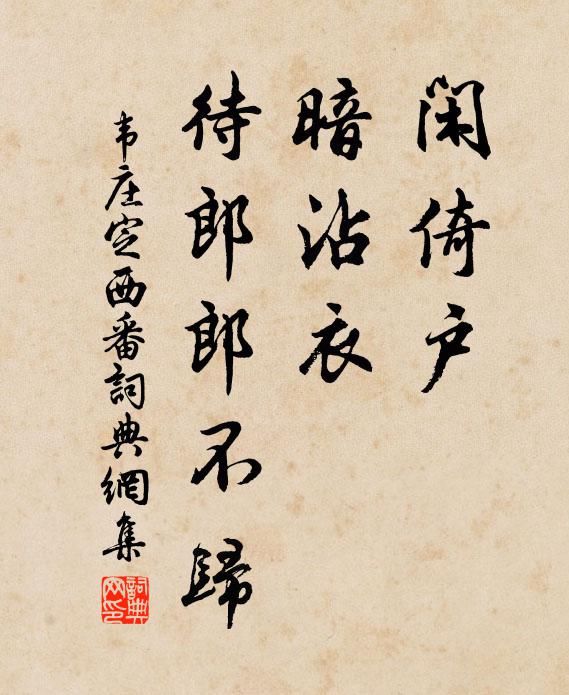 闲倚户
暗沾衣
待郎郎不歸
韦庄定西番詞典網集
詞典网印